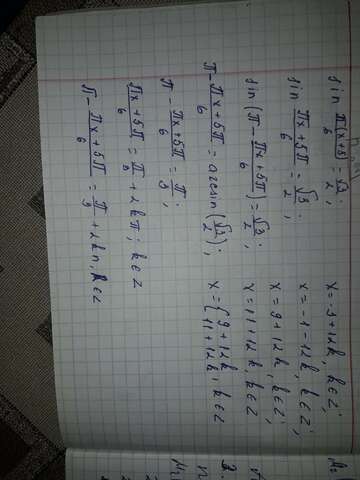 sin π(x+5)/6 = √3/2;
sin (πx+5π)/6 = √3/2;
sin(π - (πx+5π)/6) = √3/2;
π - (πx+5π)/6 = arcsin(√3/2);
π - (πx+5π)/6 = π/3;
(πx+5π)/6 = π/3 + 2kπ; k∈Z
π - (πx+5π)/6 = π/3 + 2kπ, k∈Z
x = -3+12k, k∈Z;
x = -1-12k, k∈Z;
x = 9+12k, k∈Z;
x = 11+12k, k∈Z
x = { 9+12k
11+12k, k∈Z